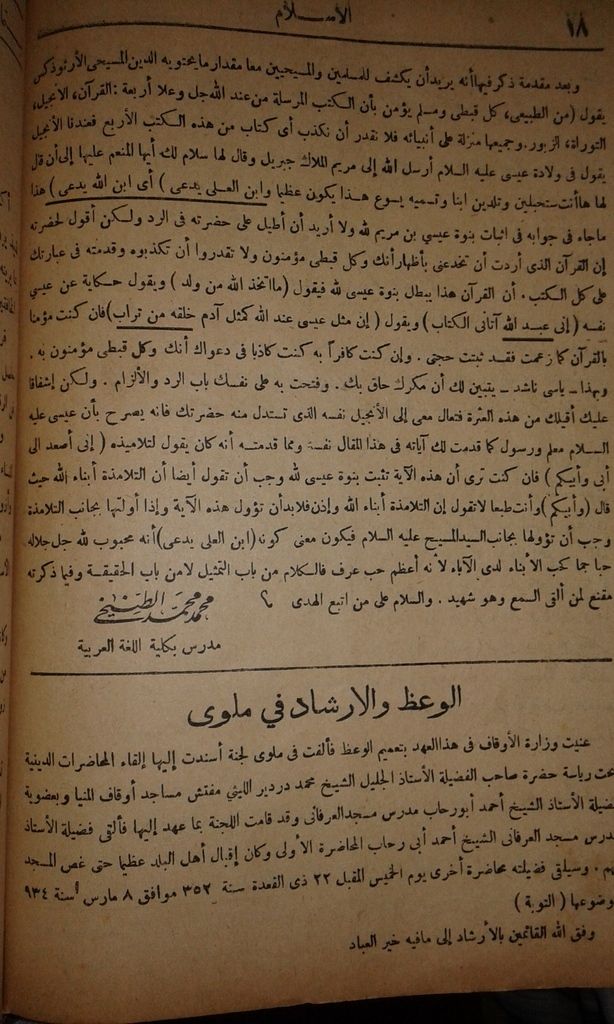 ١٨
الإسلام
وبعد مقدمة ذكر فيها أنه يريد أن يكشف للمسلمين والمسيحيين معا مقدار ما يحتويه الدين المسيحى الأرثوذكس
يقول (من الطبيعى، كل قبطى ومسلم يؤمن بأن الكتب المرسلة من عند الله جل وعلا أربعة : القرآن، الأنجيل،
التوراة، الزبور. وجميعها منزلة على أنبيائه فلا نقدر أن نكذب أى كتاب من هذه الكتب الأربع فعندنا الأنجيل
يقول فى ولادة عيسى عليه السلام أرسل الله إلى مريم الملاك جبريل وقال لها سلام لك أيها المنعم عليها إلى أن قال
لها ها أنت ستحبلين وتلدين ابنا وتسميه يسوع هذا يكون عظيما وابن العلى يدعى) أى ابن الله يدعى) هذا
ماجاء فى جوابه فى اثبات بنوة عيسى بن مريم لله ولا أريد أن أطيل على حضرته فى الرد ولكن أقول لحضرته
إن القرآن الذى أردت أن تخدعنى بأظهار أنك وكل قبطى مؤمنون ولا تقدروا أن تكذبوه وقدمته فى عبارتك
على كل الكتب. أن القرآن هذا يبطل بنوة عيسى لله فيقول (ما اتخذ الله من ولد) ويقول حكاية عن عيسى
نفسه (إنى عبد الله آتانى الكتاب) ويقول (إن مثل عيسى عند الله كمثل آدم خلقه من تراب) فان كنت مؤمنا
بالقرآن كما زعمت فقد ثبتت حجتى. وإن كنت كافراً به كنت كاذبا فى دعواك أنك وكل قبطى مؤمنون به.
وبهذا - ياسى ناشد - يتبين لك أن مكرك حاق بك. وفتحت به على نفسك باب الرد والألزام. ولكن إشفاقا
عليك أقيلك من هذه العثرة فتعال معى إلى الأنجيل نفسه الذى تستدل منه حضرتك فانه يصرح بأن عيسى عليه
السلام معلم ورسول كما قدمت لك آياته فى هذا المقال نفسه ومما قدمته أنه كان يقول لتلاميذه (إنى أصعد الى
أبى وأبيكم) فان كنت ترى أن هذه الآية تثبت بنوة عيسى لله وجب أن تقول أيضا أن التلامذة أبناء الله حيث
قال (وأبيكم) وأنت طبعا لا تقول إن التلامذة أبناء الله وإذن فلابد أن تؤول هذه الآية وإذا أولتها بجانب التلامذة
وجب أن تؤولها بجانب السيد المسيح عليه السلام فيكون معنى كونه (ابن العلى يدعى) أنه محبوب لله جل جلاله
حبا جما كحب الأبناء لدى الآباء لأنه أعظم حب عرف فالكلام من باب التمثيل لا من باب الحقيقة وفيما ذكرته
مقنع لمن ألقى السمع وهو شهيد. والسلام على من اتبع الهدى
محمد محمد الطنيخى
مدرس بكلية اللغة العربية
الوعظ والارشاد فى ملوى
عنيت وزارة الأوقاف فى هذا العهد بتعميم الوعظ فألفت فى ملوى لجنة أسندت إليها إلقاء المحاضرات الدينية
تحت رياسة حضرة صاحب الفضيلة الأستاذ الجليل الشيخ محمد دردير الليثى مفتش مساجد أوقاف المنيا وبعضوية
فضيلة الأستاذ الشيخ أحمد أبورحاب مدرس مسجد العرفانى وقد قامت اللجنة بما عهد إليها فألقى فضيلة الأستاذ
مدرس مسجد العرفانى الشيخ أحمد أبى رحاب المحاضرة الأولى وكان إقبال أهل البلد عظيما حتى غص المسجد
بهم. وسيلقى فضيلته محاضرة أخرى يوم الخميس المقبل ٢٢ ذى القعدة سنة ٣٥٢ موافق ٨ مارس سنة ٩٣٤
وضوعها (التوبة)
وفق الله القائمين بالأرشاد إلى مافيه خير العباد